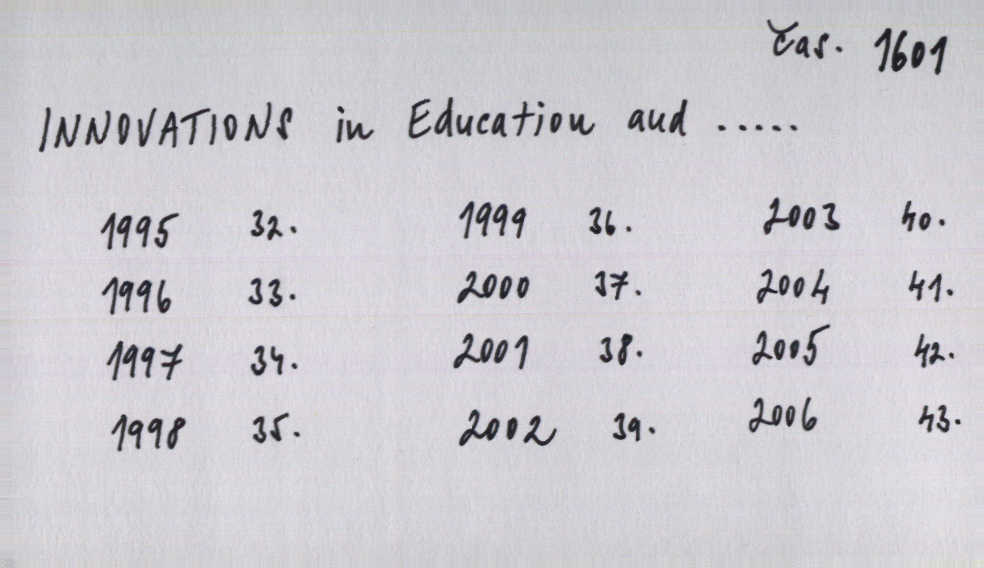 čas. 1601
INNOVATIONS in Education and .....
1995 32. 1999 36. 2003 40.
1996 33. 2000 37. 2004 41.
1997 34. 2001 38. 2005 42.
1998 35. 2002 39. 2006 43.